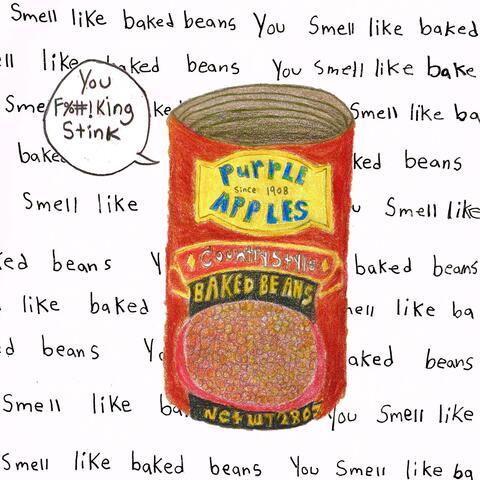 Smell like baked beans You Smell like baked
ll like baked beans You Smell like bake
You
F%#!King
Stink
Sme ke Smell like ba
bake ked beans
Smell like u Smell like
ked beans Y baked beans
like baked ell like ba
d beans Yo aked beans
Smell like ba You Smell like
Smell like baked beans You Smell like ba
PURPLE
Since 1908
APPLES
Country Style
BAKED BEANS
NET WT 28OZ